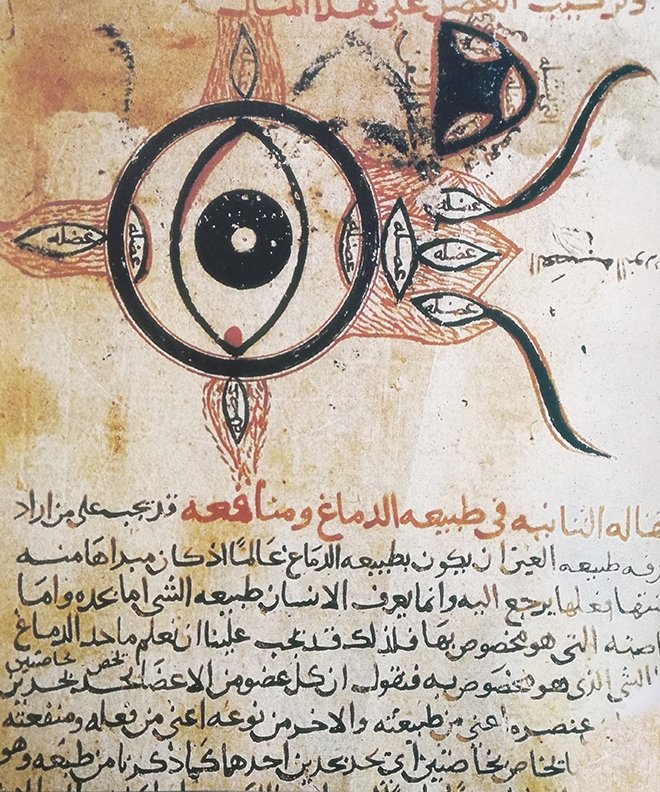 وتركيب العضل على هذا المثال
عضله
عضله
عضله
عضله
عضله
عضله
عضله
عضله
قاله الثانيه في طبيعه الدماغ ومنافعه قد يجب على من اراد
رفه طبيعه العين ان يكون بطبيعه الدماغ عالمًا اذ كان مبداها منه
منتها فعلها يرجع اليه وانما يعرف الانسان طبيعه الشي اما بحده واما
اصته التي هو مخصوص بها فلذلك قد يجب علينا ان نعلم ما حد الدماغ
الشي الذي هو مخصوص به فنقول ان كل عضو من الاعضا يحد بحدين
عنصره اعني من طبيعته والاخر من نوعه اعني من فعله ومنفعته
الخاص بخاصتين اي يحد بحدين احدهما كما ذكرنا من طبيعه وهو